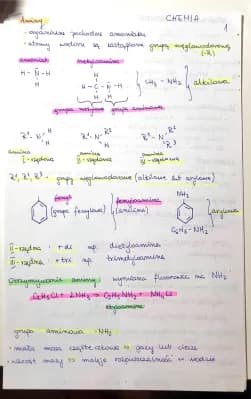 CHEMIA
1
Aminy
- organiczne pochodne amoniaku
- atomy wodoru są zastąpione grupą węglowodorową (-R)
amoniak metyloamina
H - N - H
H
H
H - C - N - H
H H
CH3 - NH2 alkilowa
grupa metylowa grupa aminowa
R1 - N - H
H
R1 - N - R2
H
R1 - N - R2
R3
amina I-rzędowa
amina II-rzędowa
amina III-rzędowa
R1, R2, R3 - grupy węglowodorowe (alkilowe lub arylowe)
fenyl
(grupa fenylowa)
fenyloamina
(anilina)
NH2
C6H5 - NH2
arylowa
II-rzędna : +di np. dietyloamina
III-rzędna : +tri np. trimetyloamina
Otrzymywanie aminy wymiana fluorowca na NH2
C2H5Cl + 2NH3 → C2H5NH2 + NH4Cl
etyloamina
grupa aminowa -NH2
- mała masa cząsteczkowa → gazy lub ciecze
- wzrost masy → maleje rozpuszczalność w wodzie